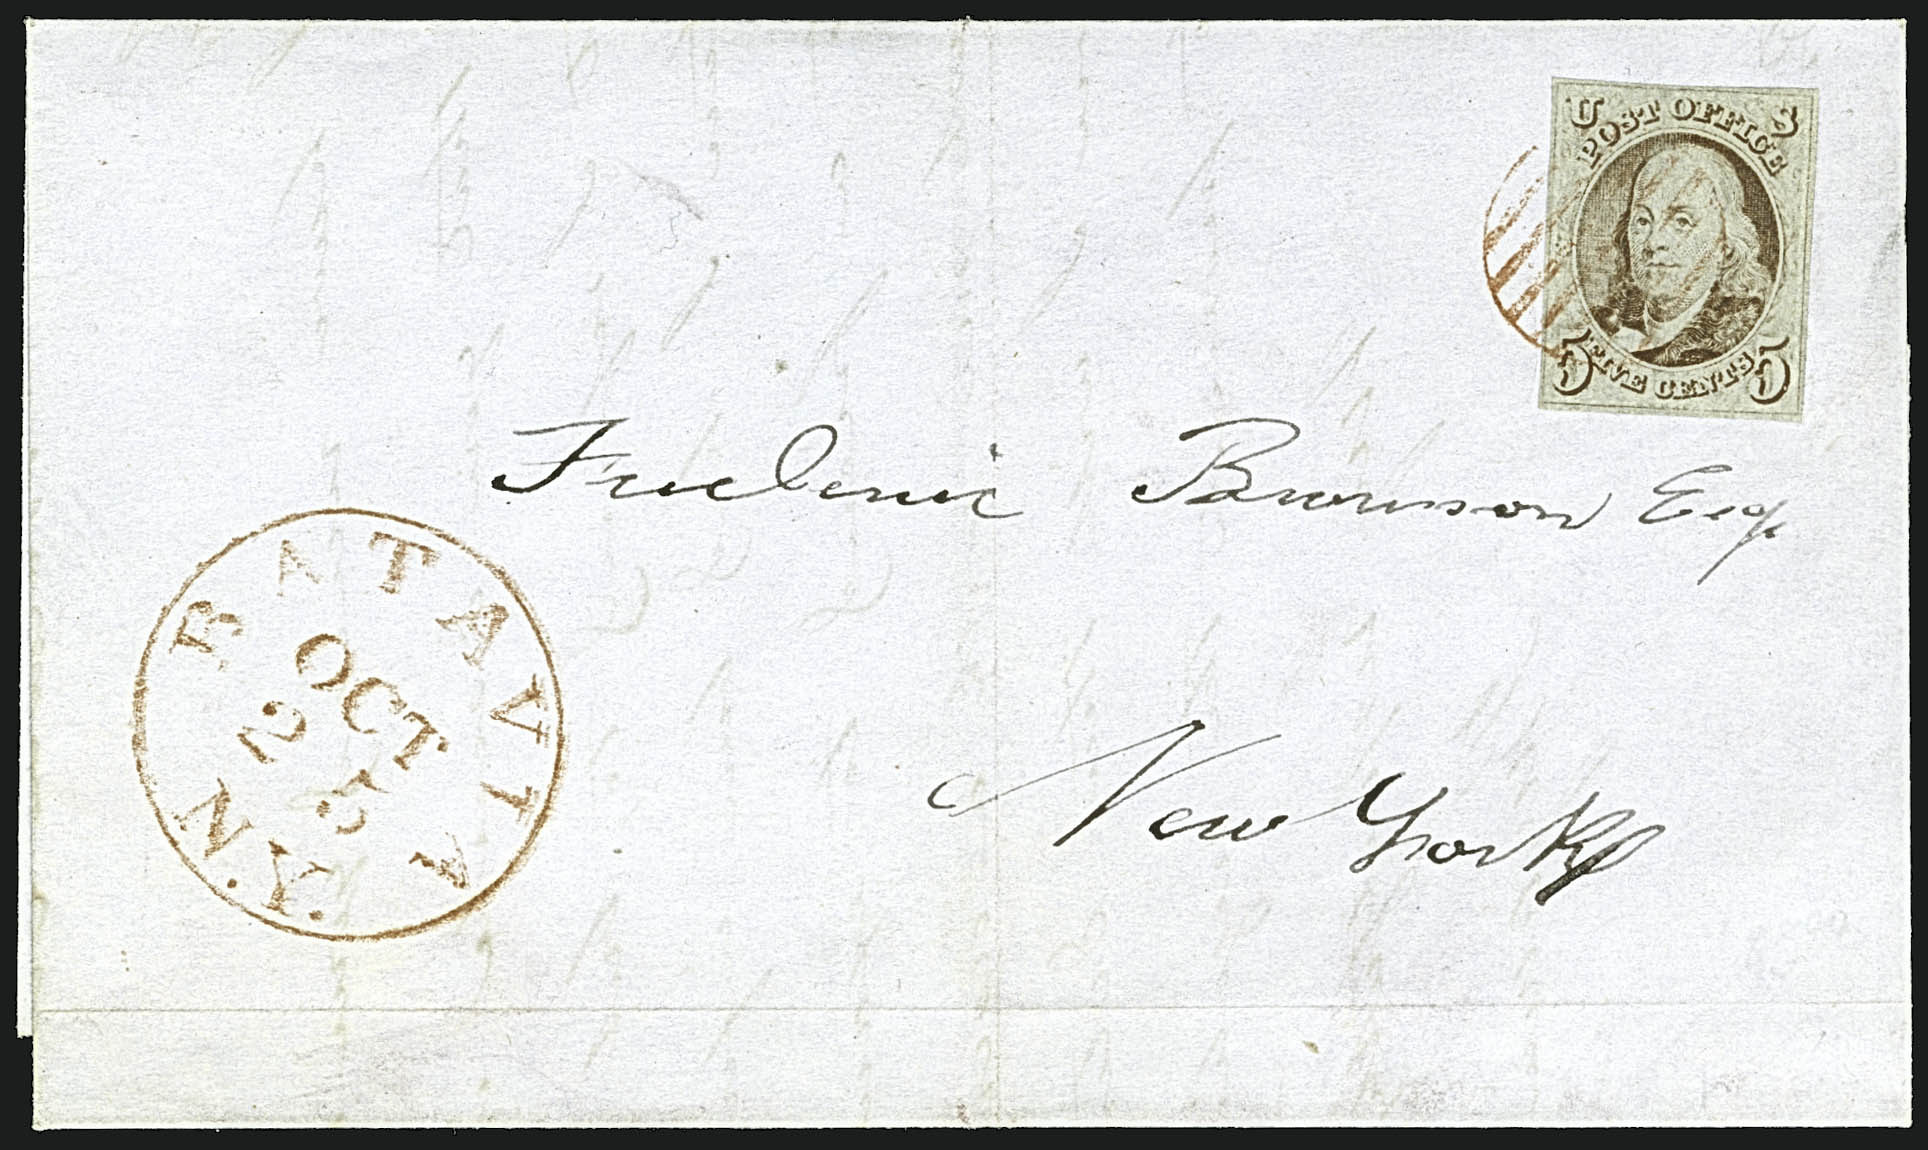 U S
POST OFFICE
5 FIVE CENTS 5
Frederic Bronson Esq.
New York
BATAVIA
OCT
25
N.Y.